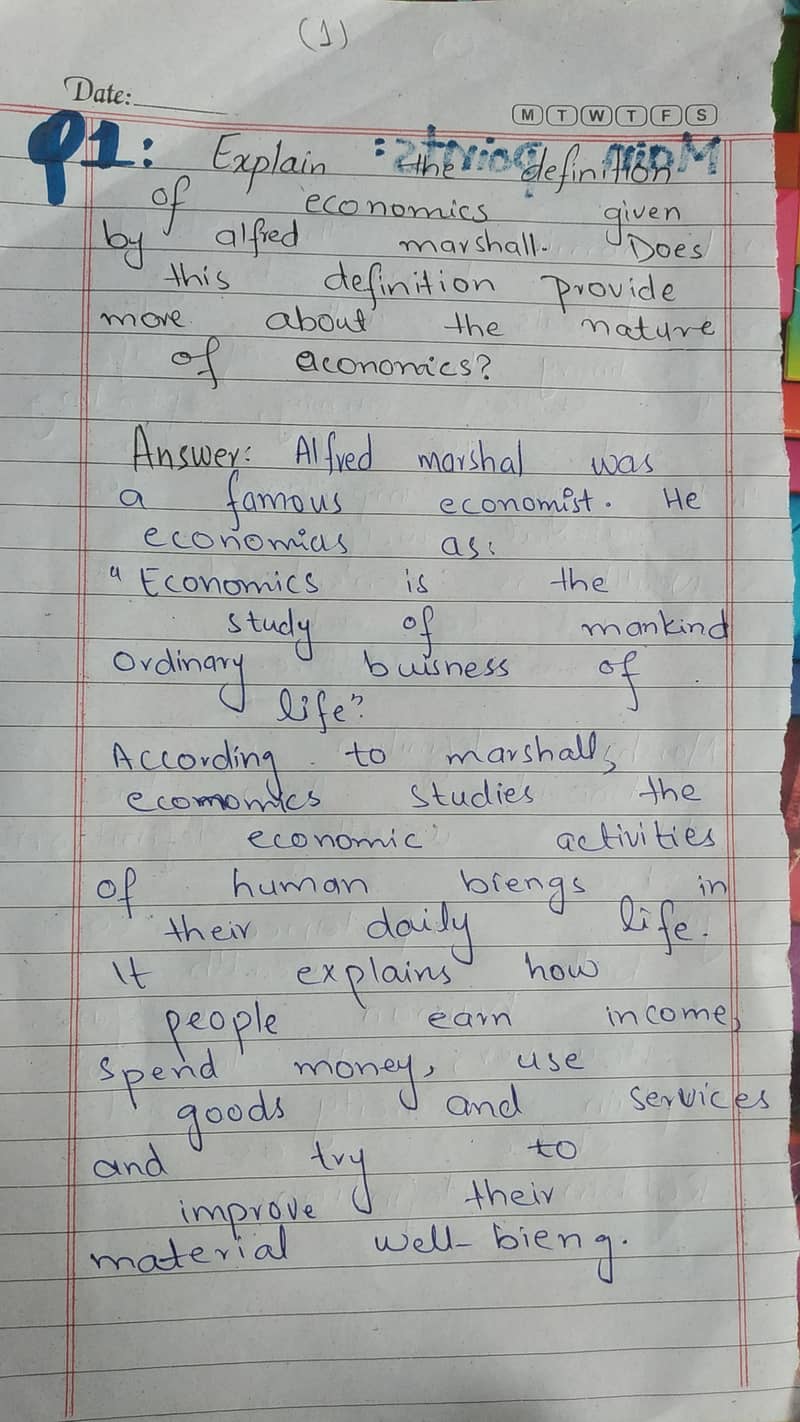 (1)
Date:
M T W T F S
Q1: Explain the definition
of economics given
by alfred marshall. Does
this definition provide
more about the nature
of economics?
Answer: Alfred marshal was
a famous economist. He
economias as:
"Economics is the
study of mankind
Ordinary buisness of
life"
According to marshall,
ecomomics studies the
economic activities
of human biengs in
their daily life.
It explains how
people earn income,
spend money, use
goods and services
and try to
improve their
material well-bieng.